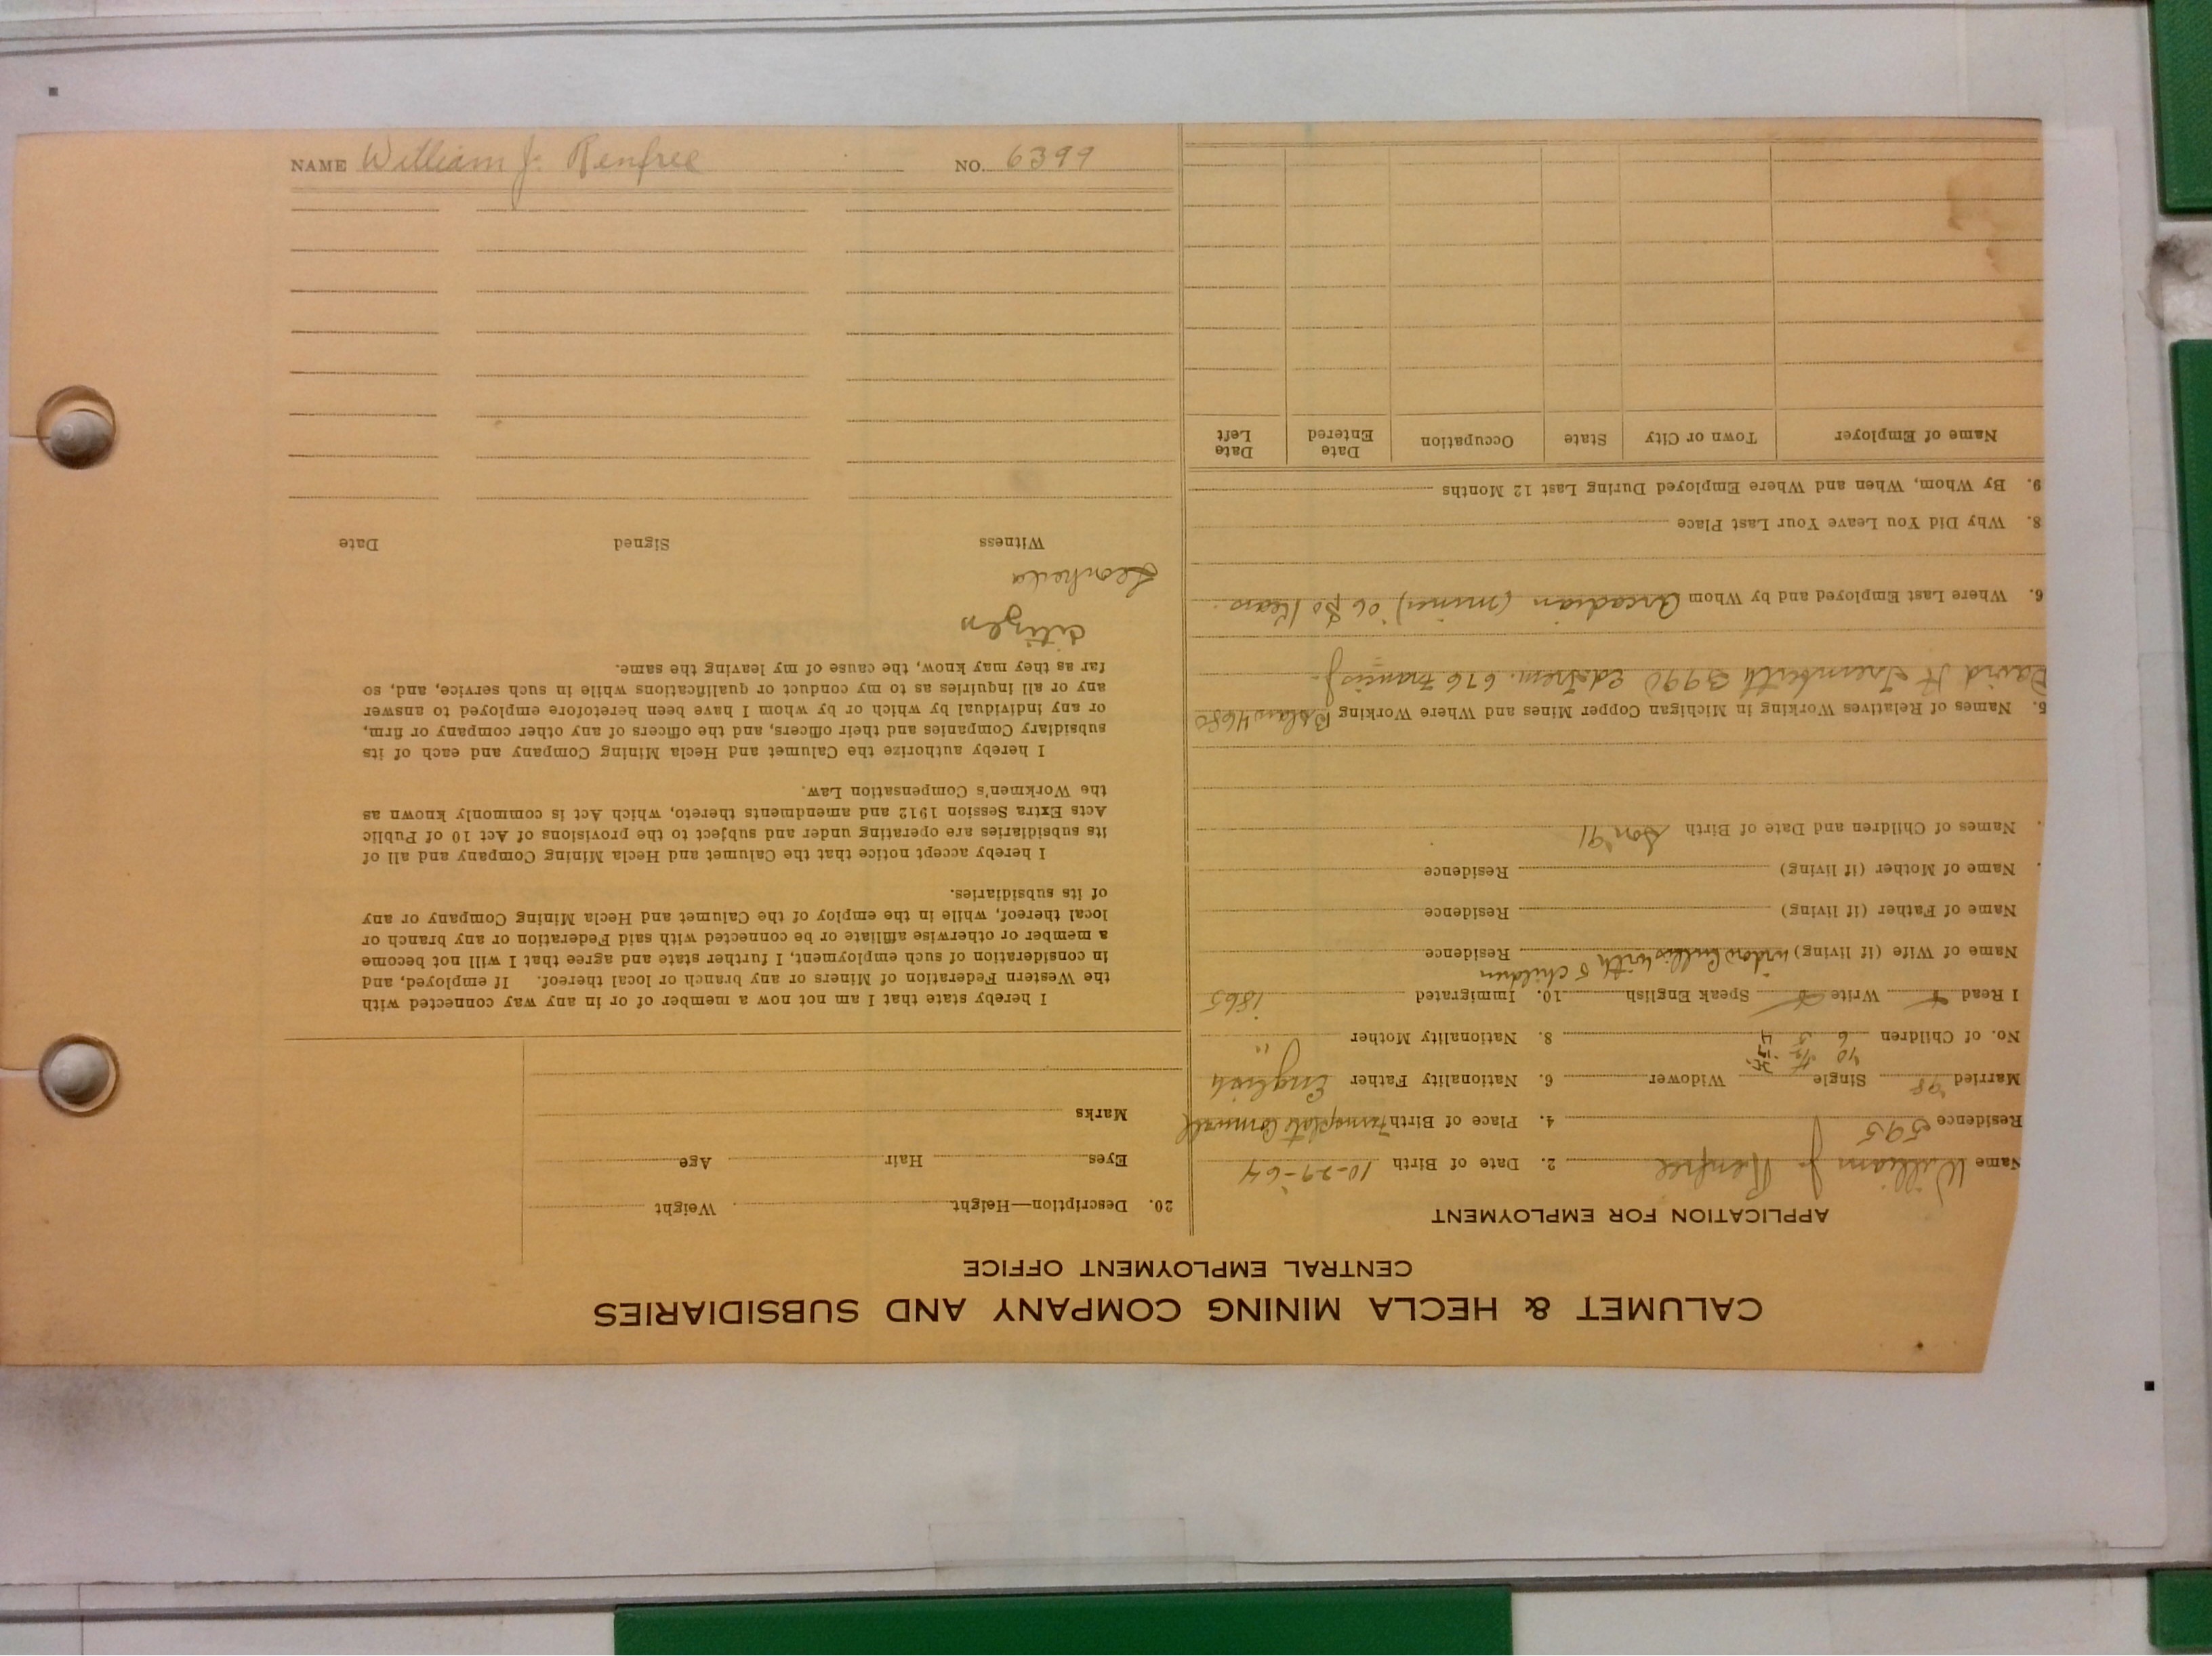 CALUMET & HECLA MINING COMPANY AND SUBSIDIARIES
CENTRAL EMPLOYMENT OFFICE
APPLICATION FOR EMPLOYMENT
Name William J. Renfree 2. Date of Birth 10-29-64
Residence 595 4. Place of Birth Cornwall
Married 98 Single Widower 6. Nationality Father English
'10
No. of Children 6 5 4 8. Nationality Mother "
I Read Write Speak English 10. Immigrated 1865
Name of Wife (if living) widow with 5 children Residence
Name of Father (if living) Residence
Name of Mother (if living) Residence
Names of Children and Date of Birth Son 91
5. Names of Relatives Working in Michigan Copper Mines and Where Working 4680
David H Trembath 3990 676
6. Where Last Employed and by Whom Arcadian (miner) '06 80 Kears.
8. Why Did You Leave Your Last Place
9. By Whom, When and Where Employed During Last 12 Months
Name of Employer Town or City State Occupation Date Entered Date Left
20. Description—Height Weight
Eyes Hair Age
Marks
I hereby state that I am not now a member of or in any way connected with
the Western Federation of Miners or any branch or local thereof. If employed, and
in consideration of such employment, I further state and agree that I will not become
a member or otherwise affiliate or be connected with said Federation or any branch or
local thereof, while in the employ of the Calumet and Hecla Mining Company or any
of its subsidiaries.
I hereby accept notice that the Calumet and Hecla Mining Company and all of
its subsidiaries are operating under and subject to the provisions of Act 10 of Public
Acts Extra Session 1912 and amendments thereto, which Act is commonly known as
the Workmen's Compensation Law.
I hereby authorize the Calumet and Hecla Mining Company and each of its
subsidiary Companies and their officers, and the officers of any other company or firm,
or any individual by which or by whom I have been heretofore employed to answer
any or all inquiries as to my conduct or qualifications while in such service, and, so
far as they may know, the cause of my leaving the same.
citizen
Witness Signed Date
NAME William J. Renfree NO. 6399